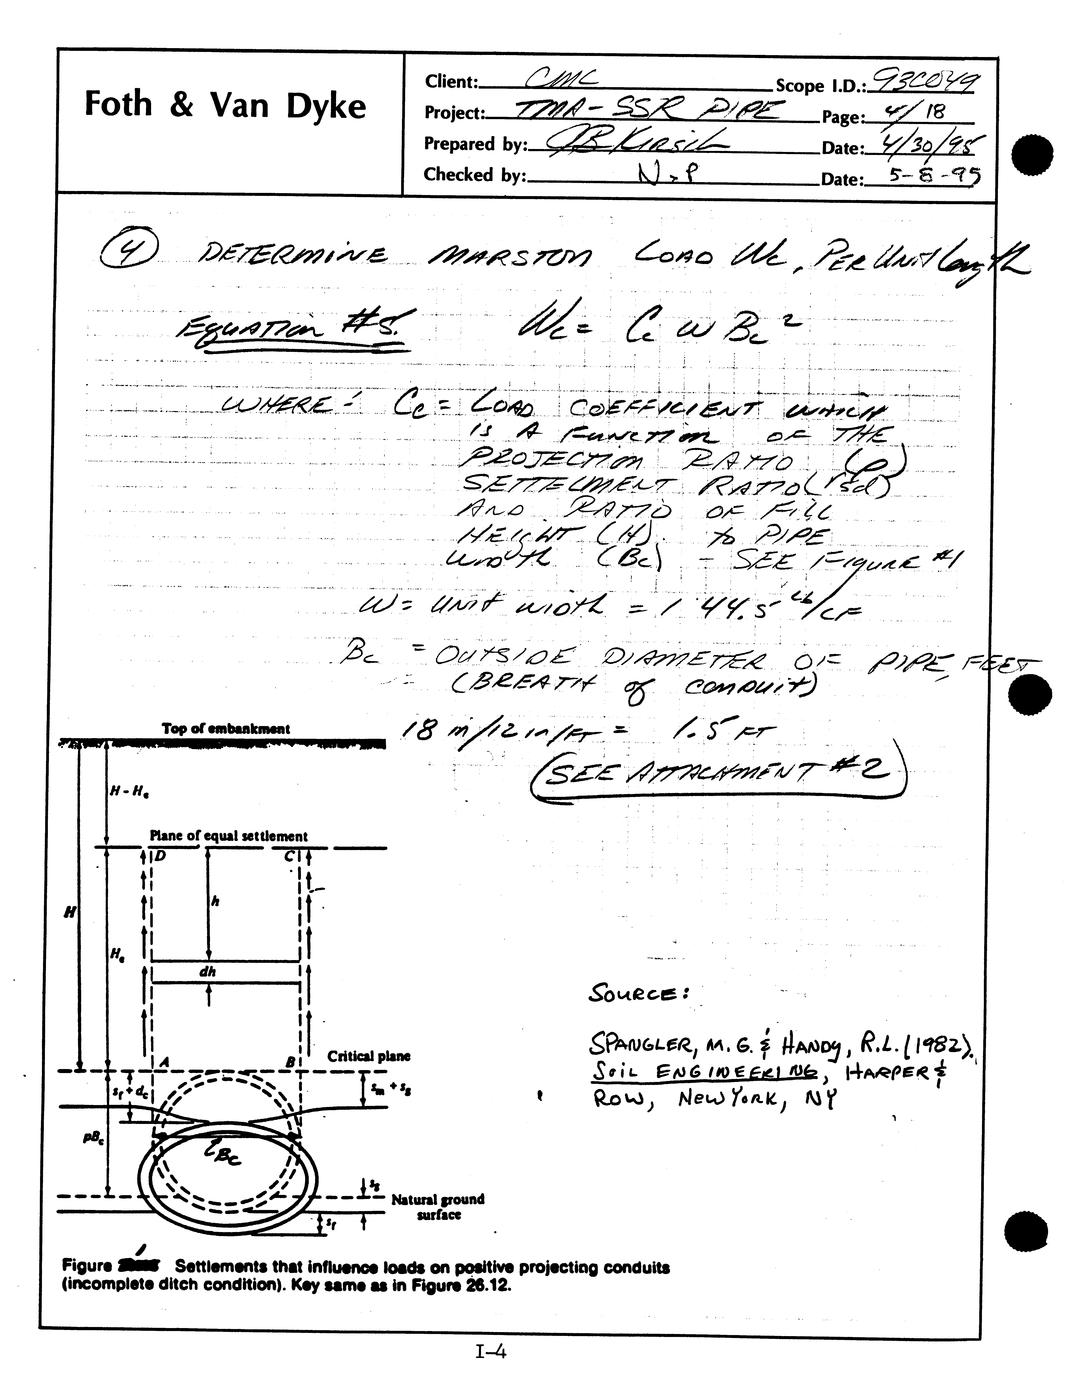 Foth & Van Dyke
Client: CMC Scope I.D.: 93C049
Project: TMA-SSR PIPE Page: 4/18
Prepared by: JBKirsch Date: 4/30/95
Checked by: N.P Date: 5-8-95
4 DETERMINE MARSTON LOAD Wc, PER Unit Length
Equation #5. Wc = Cc w Bc²
WHERE: Cc = LOAD COEFFICIENT WHICH
is A Function OF THE
PROJECTION RATIO (ρ)
SETTELMENT RATIO (rsd)
AND RATIO OF FILL
HEIGHT (H) to PIPE
Width (Bc) - SEE Figure #1
W = Unit width = 144.5 Lb/CF
Bc = OUTSIDE DIAMETER OF PIPE, FEET
= (BREATH of conduit)
18 in/12 in/FT = 1.5 FT
(SEE ATTACHMENT #2)
Top of embankment
H - He
Plane of equal settlement
D C
h
H
He
dh
A B
Critical plane
sf + dc
sm + sg
pBc
Bc
sg
Natural ground
surface
sf
SOURCE:
SPANGLER, M.G. & HANDY, R.L. (1982).
Soil ENGINEERING, HARPER &
ROW, NEW YORK, NY
Figure 1 Settlements that influence loads on positive projecting conduits
(incomplete ditch condition). Key same as in Figure 26.12.
I-4